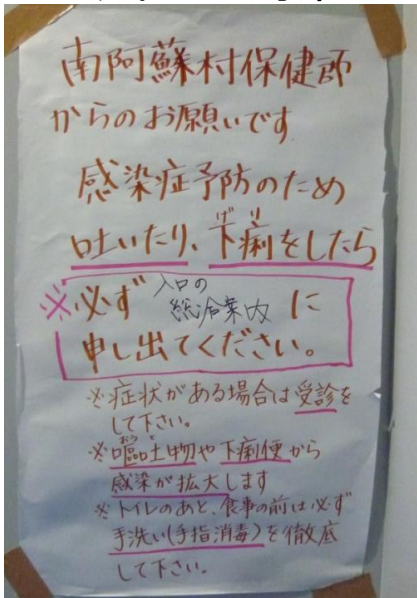 南阿蘇村保健師
からのお願いです
感染症予防のため
吐いたり、下痢をしたら
げり
※必ず 入口の総合案内 に
申し出てください。
※症状がある場合は受診を
して下さい。
※嘔吐物や下痢便から
おうと
感染が拡大します
※トイレのあと、食事の前は必ず
手洗い(手指消毒)を徹底
して下さい。